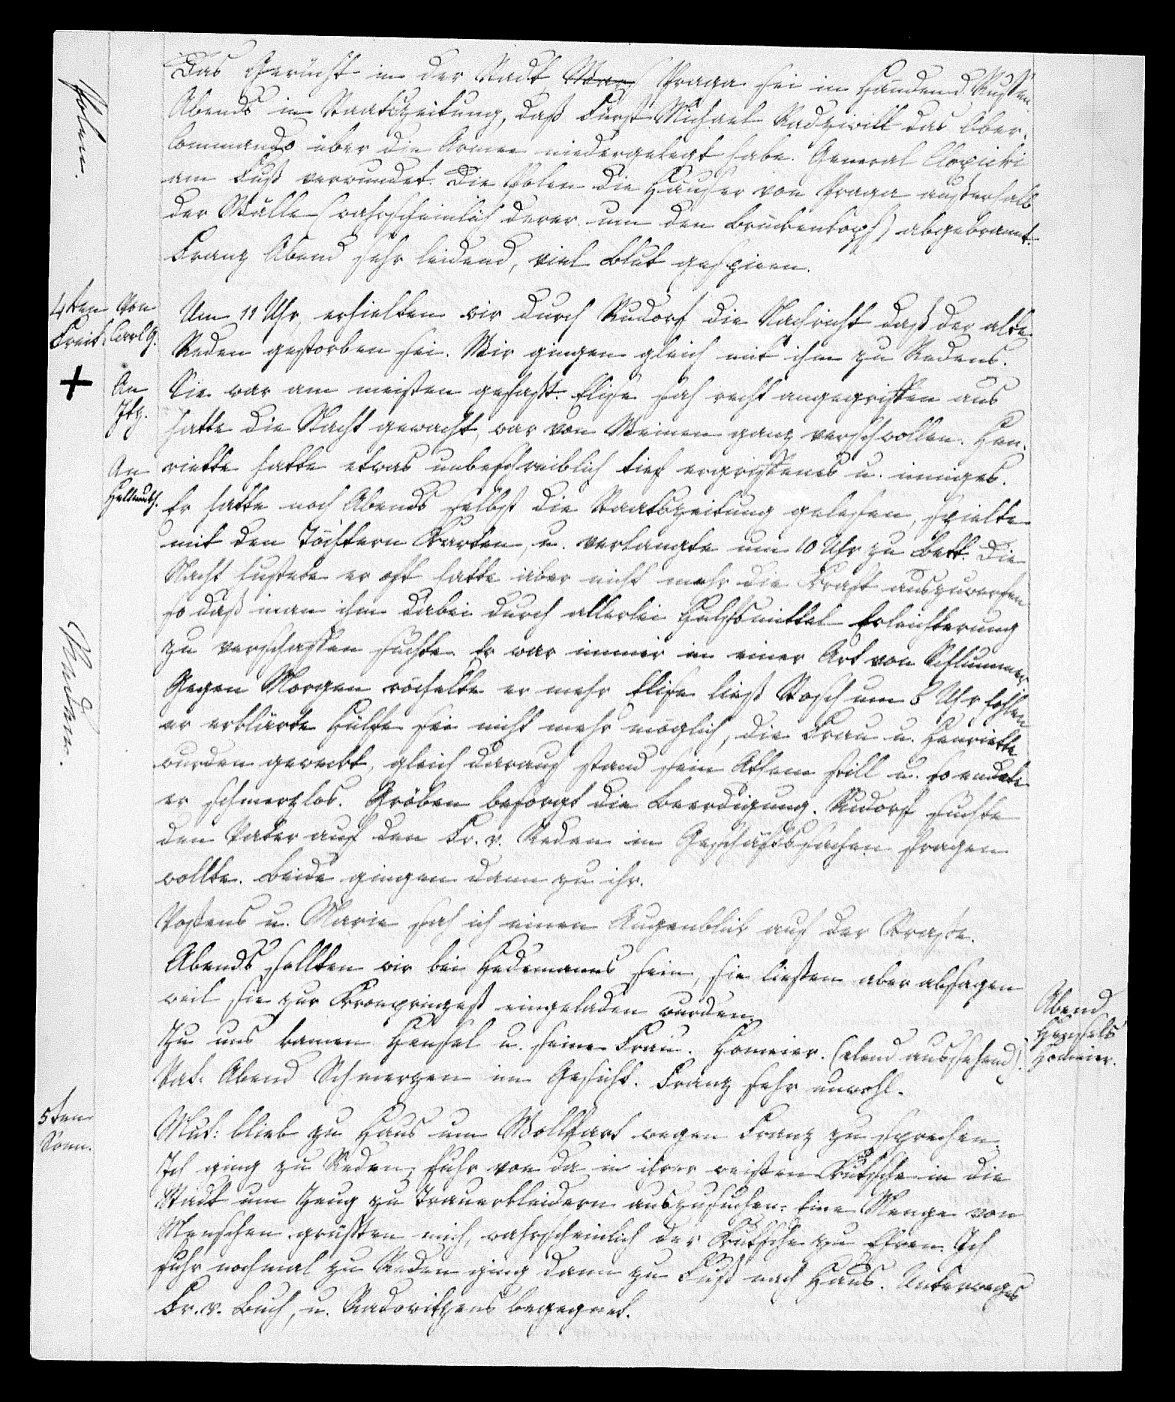 Polen.
Das Gerücht in der Stadt War Praga sei in Händen d Russen.
Abends in Staatszeitung, daß Fürst Michael Radziwill das Ober-
Commando über die Armee niedergelegt habe. General Clopicki
am Fuß verwundet. Die Polen die Häuser von Praga außerhalb
der Wälle (wahrscheinlich derer um den Brückenkopf) abgebrannt.
Franz Abend sehr leidend, viel Blut gespieen.
4ten
Freit.
+
Von
Carl G.
An
Itz.
An
Hellmuth.
Um 11 Uhr, erhielten wir durch Rudorf die Nachricht daß der alte
Reden gestorben sei. Wir gingen gleich mit ihm zu Redens.
Sie war am meisten gefaßt. Elise sah recht angegriffen aus
hatte die Nacht gewacht, war von Weinen ganz verschwollen. Hen-
riette hatte etwas unbeschreiblich tief ergriffenes u. inniges.
Er hatte noch Abends selbst die Staatszeitung gelesen, spielte
mit den Töchtern Karten, u. verlangte um 10 Uhr zu Bett. Die
Nacht hustete er oft hatte aber nicht mehr die Kraft auszuwerfen
so daß man ihm dabei durch allerlei Hülfsmittel Erleichterung
zu verschaffen suchte. Er war immer in einer Art von Schlummer.
Gegen Morgen röchelte er mehr Elise ließ Stosch um 5 Uhr holen
er erklärte Hülfe sei nicht mehr möglich, die Frau u. Henriette
wurden geweckt, gleich darauf stand sein Athem still u. so endete
er schmerzlos. Gröben besorgt die Beerdigung. Rudorf suchte
den Vater auf den Fr. v. Reden in Geschäftssachen fragen
wollte. Beide gingen dann zu ihr.
Rudorf.
Postens u. Marie sah ich einen Augenblick auf der Straße.
Abends sollten wir bei Hedemanns sein, sie ließen aber absagen
weil sie zur Kronprinzeß eingeladen wurden.
Zu uns kamen Hensel u. seine Frau. Homeier. (elend aussehend).
Vat. Abend Schmerzen im Gesicht. Franz sehr unwohl.
Abend
Hensels
Homeier.
5ten
Sonn.
Mut: blieb zu Haus um Wollfart wegen Franz zu sprechen
Ich ging zu Reden, fuhr von da in ihrer Kutsche in die
Stadt um Zeug zu Trauerkleidern auszusuchen. Eine Menge von
Menschen grüßten mich, wahrscheinlich der Kutsche zu Ehren. Ich
fuhr nochmal zu Reden ging dann zu Fuß nach Haus. Unterweges
Fr. v. Buch, u. Radowitzens begegnet.